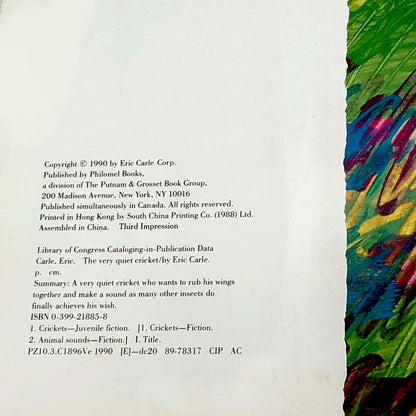 Copyright © 1990 by Eric Carle Corp.
Published by Philomel Books,
a division of The Putnam & Grosset Book Group,
200 Madison Avenue, New York, NY 10016
Published simultaneously in Canada. All rights reserved.
Printed in Hong Kong by South China Printing Co. (1988) Ltd.
Assembled in China. Third Impression
Library of Congress Cataloging-in-Publication Data
Carle, Eric. The very quiet cricket/by Eric Carle.
p. cm.
Summary: A very quiet cricket who wants to rub his wings
together and make a sound as many other insects do
finally achieves his wish.
ISBN 0-399-21885-8
1. Crickets—Juvenile fiction. [1. Crickets—Fiction.
2. Animal sounds—Fiction.] I. Title.
PZ10.3.C1896Ve 1990 [E]—dc20 89-78317 CIP AC